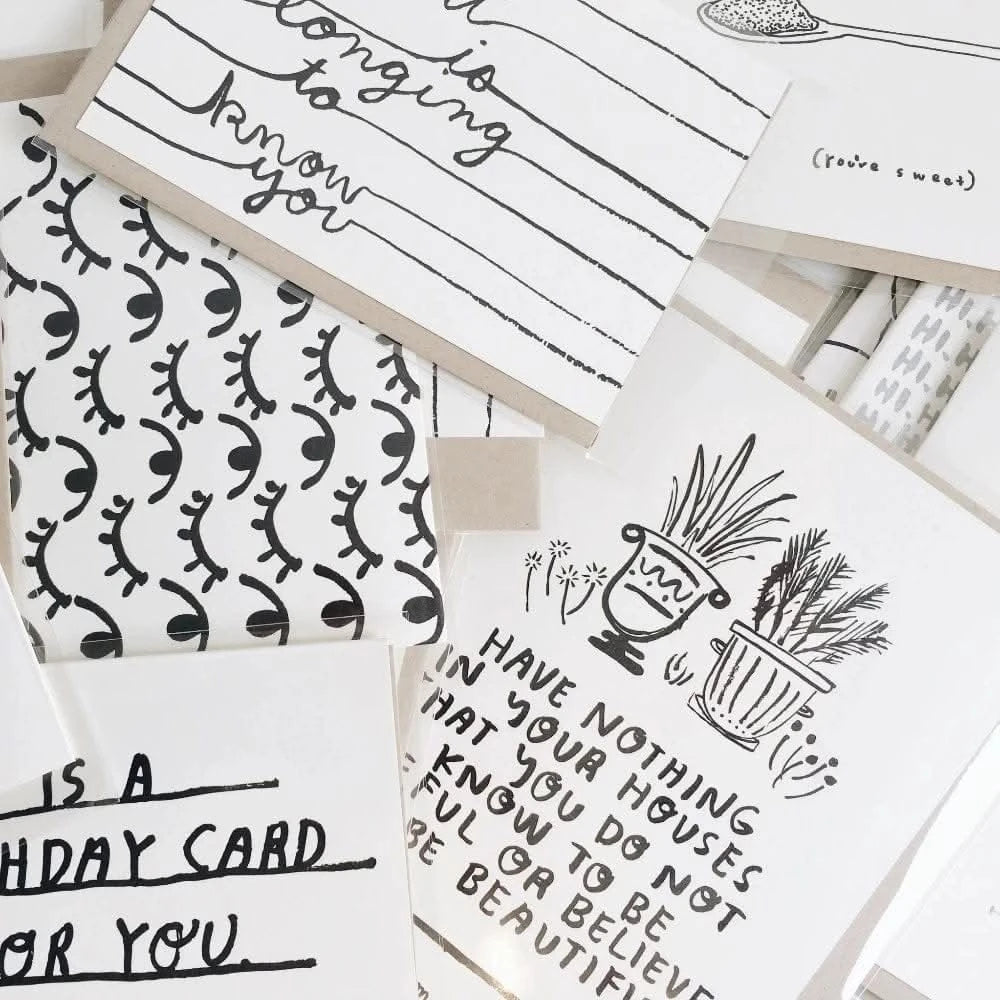 is
longing
to
know
you
(you're sweet)
HI. HI. HI.
HAVE NOTHING
IN YOUR HOUSES
THAT YOU DO NOT
KNOW TO BE
FUL OR BELIEVE
BE BEAUTIFU
IS A
HDAY CARD
OR YOU.